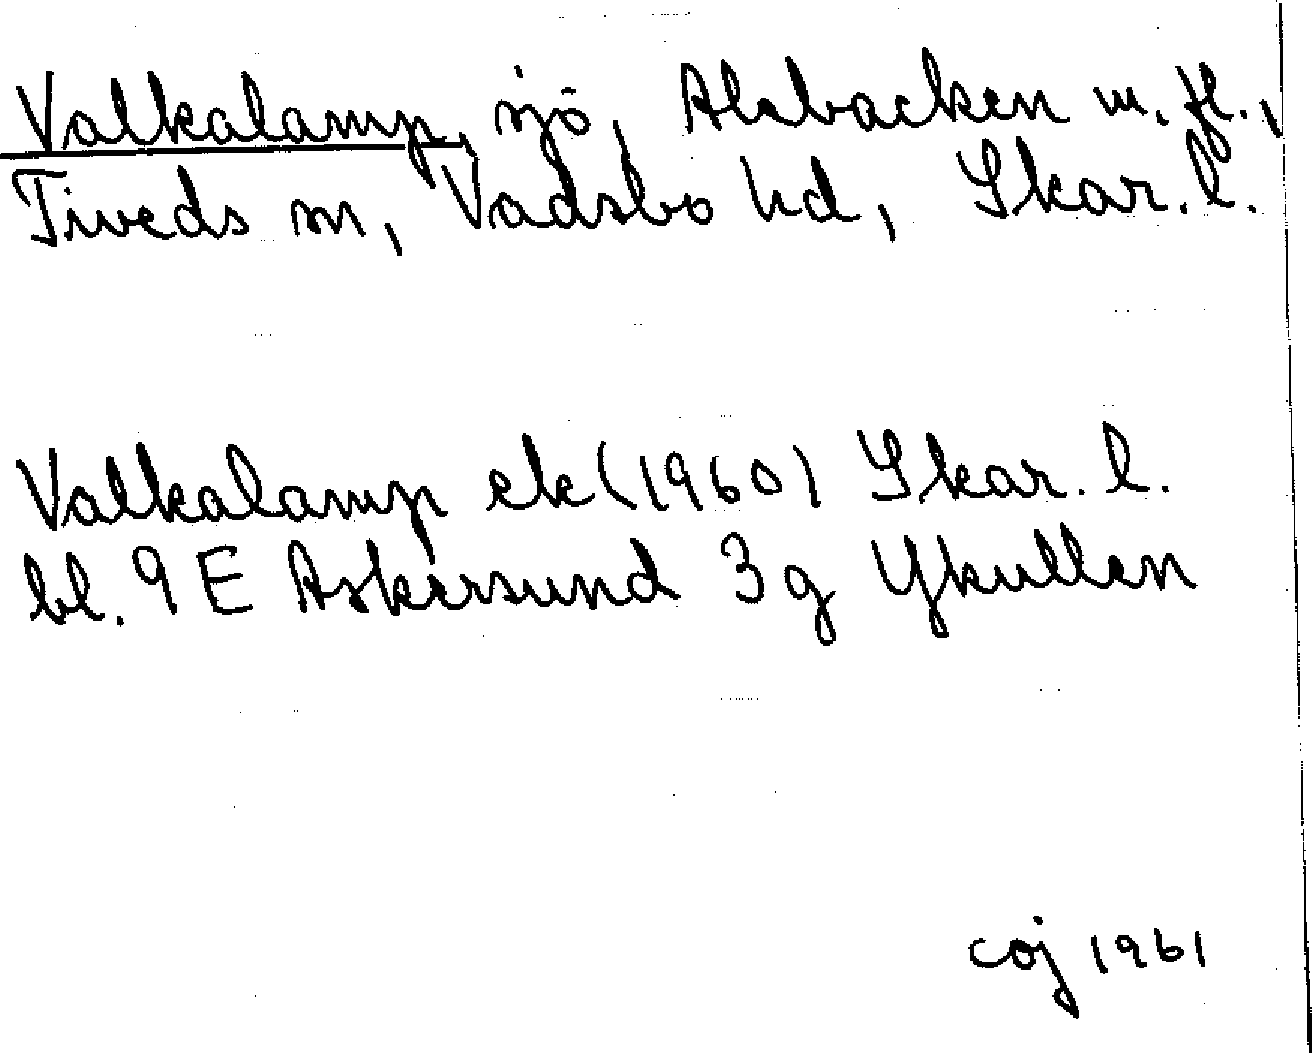 Valkalamp, sjö, Alsbacken m. fl.,
Tiveds sn, Vadsbo hd, Skar. l.
Valkalamp ek (1960) Skar. l.
bl. 9 E Askersund 3 g Ykullen
coj 1961